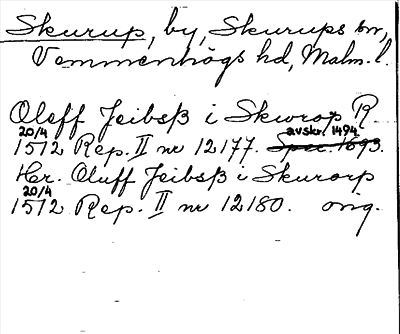 Skurup, by, Skurups sn,
Vemmenhögs hd, Malm. l.
Oleff Jeibsß i Skworop R
20/4 avskr. 1494
1512 Rep. II nr 12177. Spec. 1693.
Her. Oluff Jeibsß i Skurorp
20/4
1512 Rep. II nr 12180. orig.